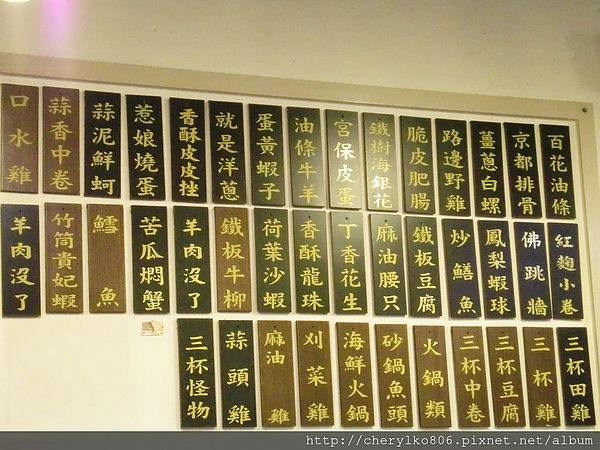 百花油條
京都排骨
薑蔥白螺
路邊野雞
脆皮肥腸
鐵樹海銀花
宮保皮蛋
油條牛羊
蛋黃蝦子
就是洋蔥
香酥皮皮挫
惹娘燒蛋
蒜泥鮮蚵
蒜香中卷
口水雞
紅麴小卷
佛跳牆
鳳梨蝦球
炒鱔魚
鐵板豆腐
麻油腰只
丁香花生
香酥龍珠
荷葉沙蝦
鐵板牛柳
羊肉沒了
苦瓜燜蟹
鱈魚
竹筒貴妃蝦
羊肉沒了
三杯田雞
三杯雞
三杯豆腐
三杯中卷
火鍋類
砂鍋魚頭
海鮮火鍋
刈菜雞
麻油雞
蒜頭雞
三杯怪物
http://cherylko806.pixnet.net/album